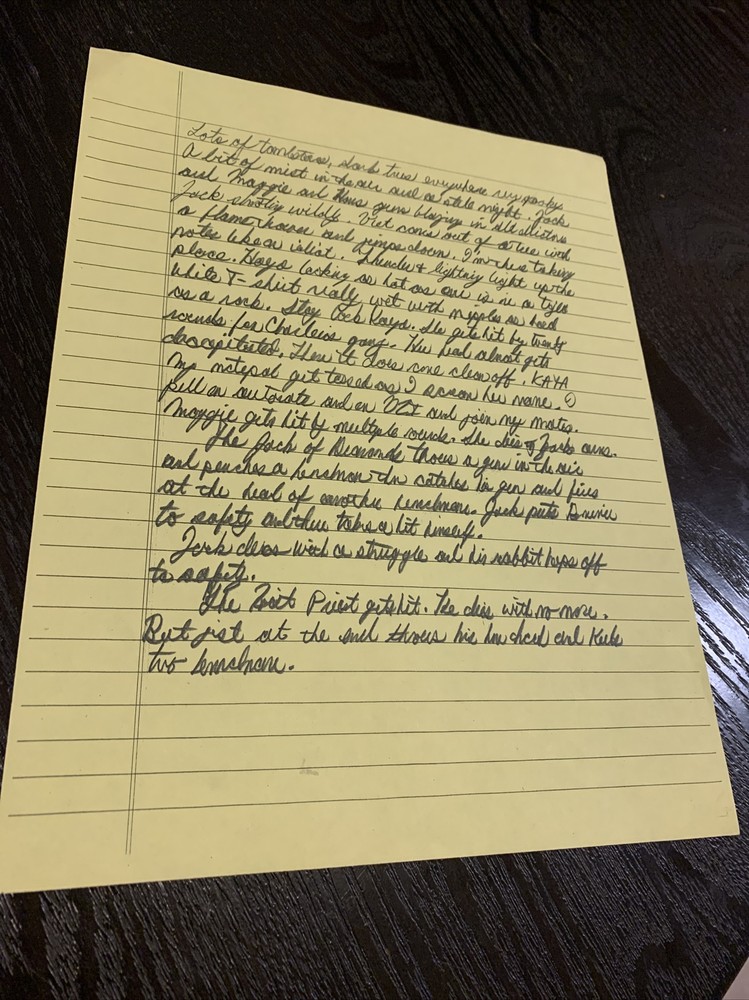 Lots of tombstones, dark trees everywhere very spooky
A bit of mist in the air and a stale night. Jack
and Maggie and Hans guns blazing in all directions
Jack shooting wildly. Viet comes out of a tree with
a flame thrower and jumps down. I'm there taking
notes like an idiot. Thunder & lightning light up the
place. Kaya looking as hot as ever is in a tight
white T-shirt really wet with nipples as hard
as a rock. Stay back Kaya. She gets hit by twenty
rounds for Charlie's gang. Her head almost gets
decapitated. Then it does come clean off. KAYA
My notepad get tossed as I scream her name. I
pull an and an and join my mates.
Maggie gets hit by multiple rounds. She dies Jack's arms.
The Jack of Diamonds throws a gun in the air
and punches a henchman then catches the gun and fires
at the head of another henchman. Jack puts
to safety and then takes a hit himself.
Jack dies with a struggle and his rabbit hops off
to safety.
The Priest gets hit. He dies with no more.
But just at the end throws his and
two henchmen.